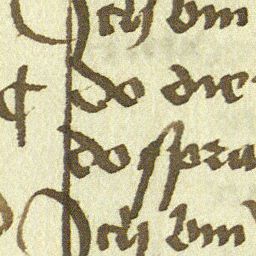 Ich bin
¶ do die
do spra
Ich bin